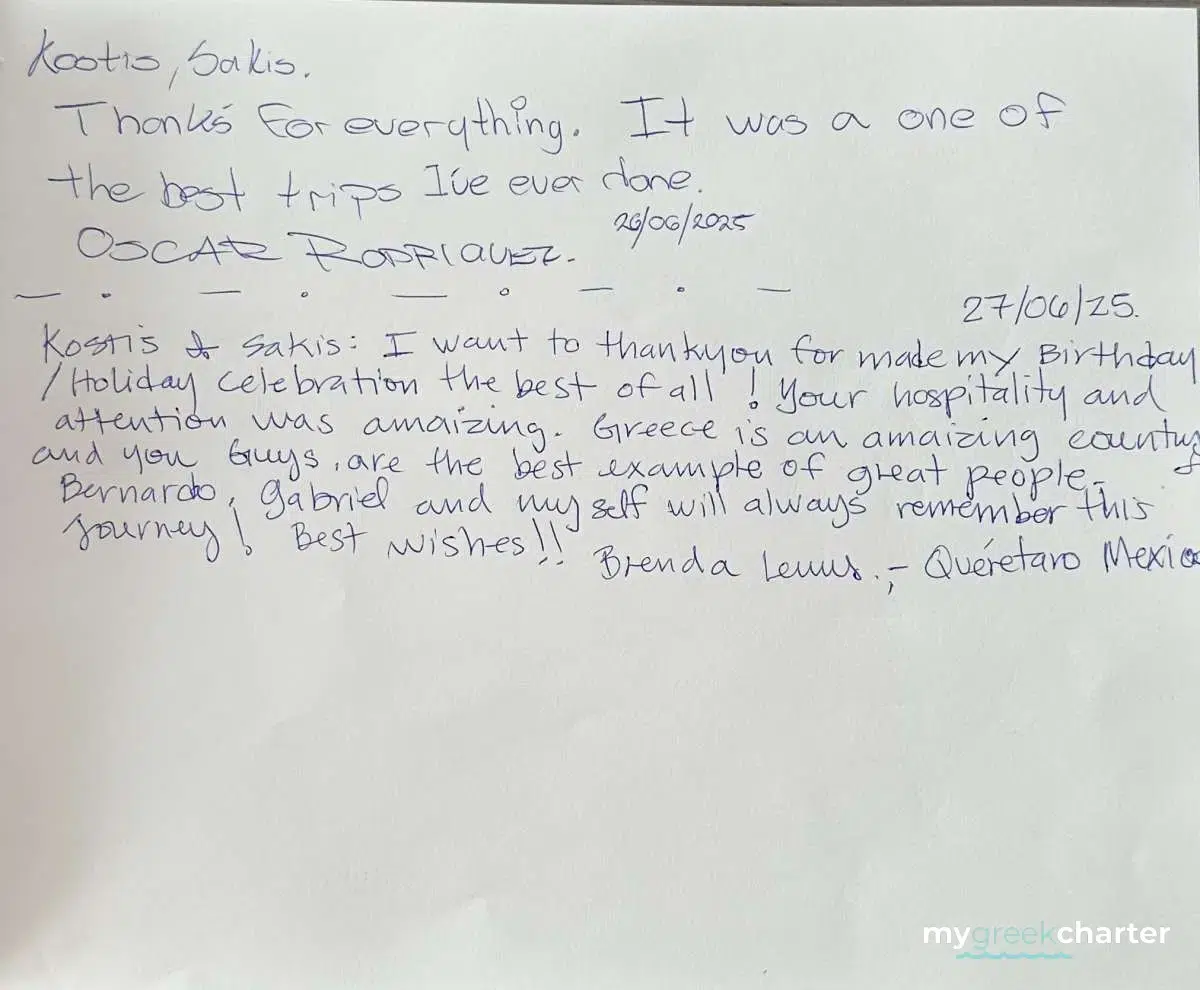 Kostis, Sakis.
Thanks For everything. It was a one of
the best trips I've ever done.
26/06/2025
OSCAR RODRIGUEZ.
27/06/25.
Kostis & Sakis: I want to thankyou for made my Birthday
/Holiday celebration the best of all! Your hospitality and
attention was amaizing. Greece is an amaizing country
and you Guys, are the best example of great people.
Bernardo, Gabriel and my self will always remember this
Journey! Best wishes!!
Brenda Lemus.,- Quéretaro Mexico
mygreekcharter